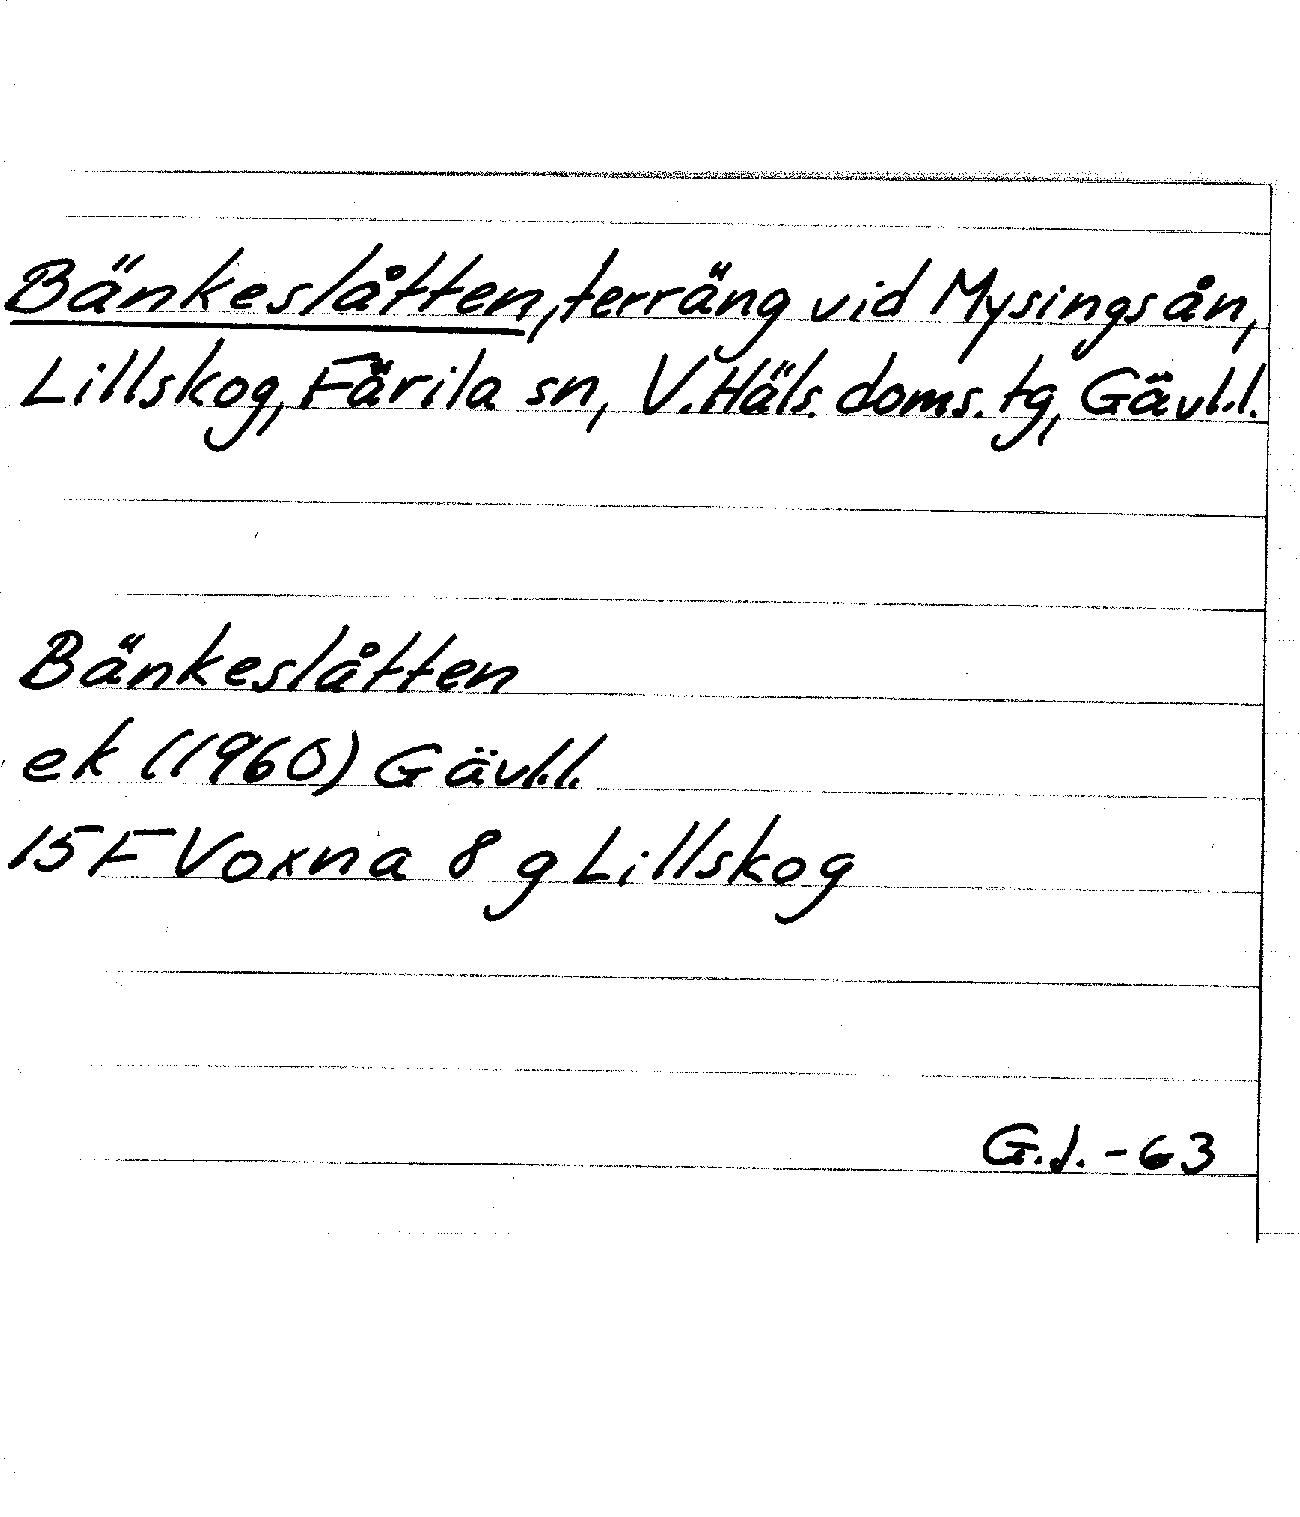 Bänkeslåtten, terräng vid Mysingsån,
Lillskog, Färila sn, V. Häls. doms. tg, Gävl.l.
Bänkeslåtten
ek (1960) Gävl.l.
15 F Voxna 8 g Lillskog
G.J. - 63